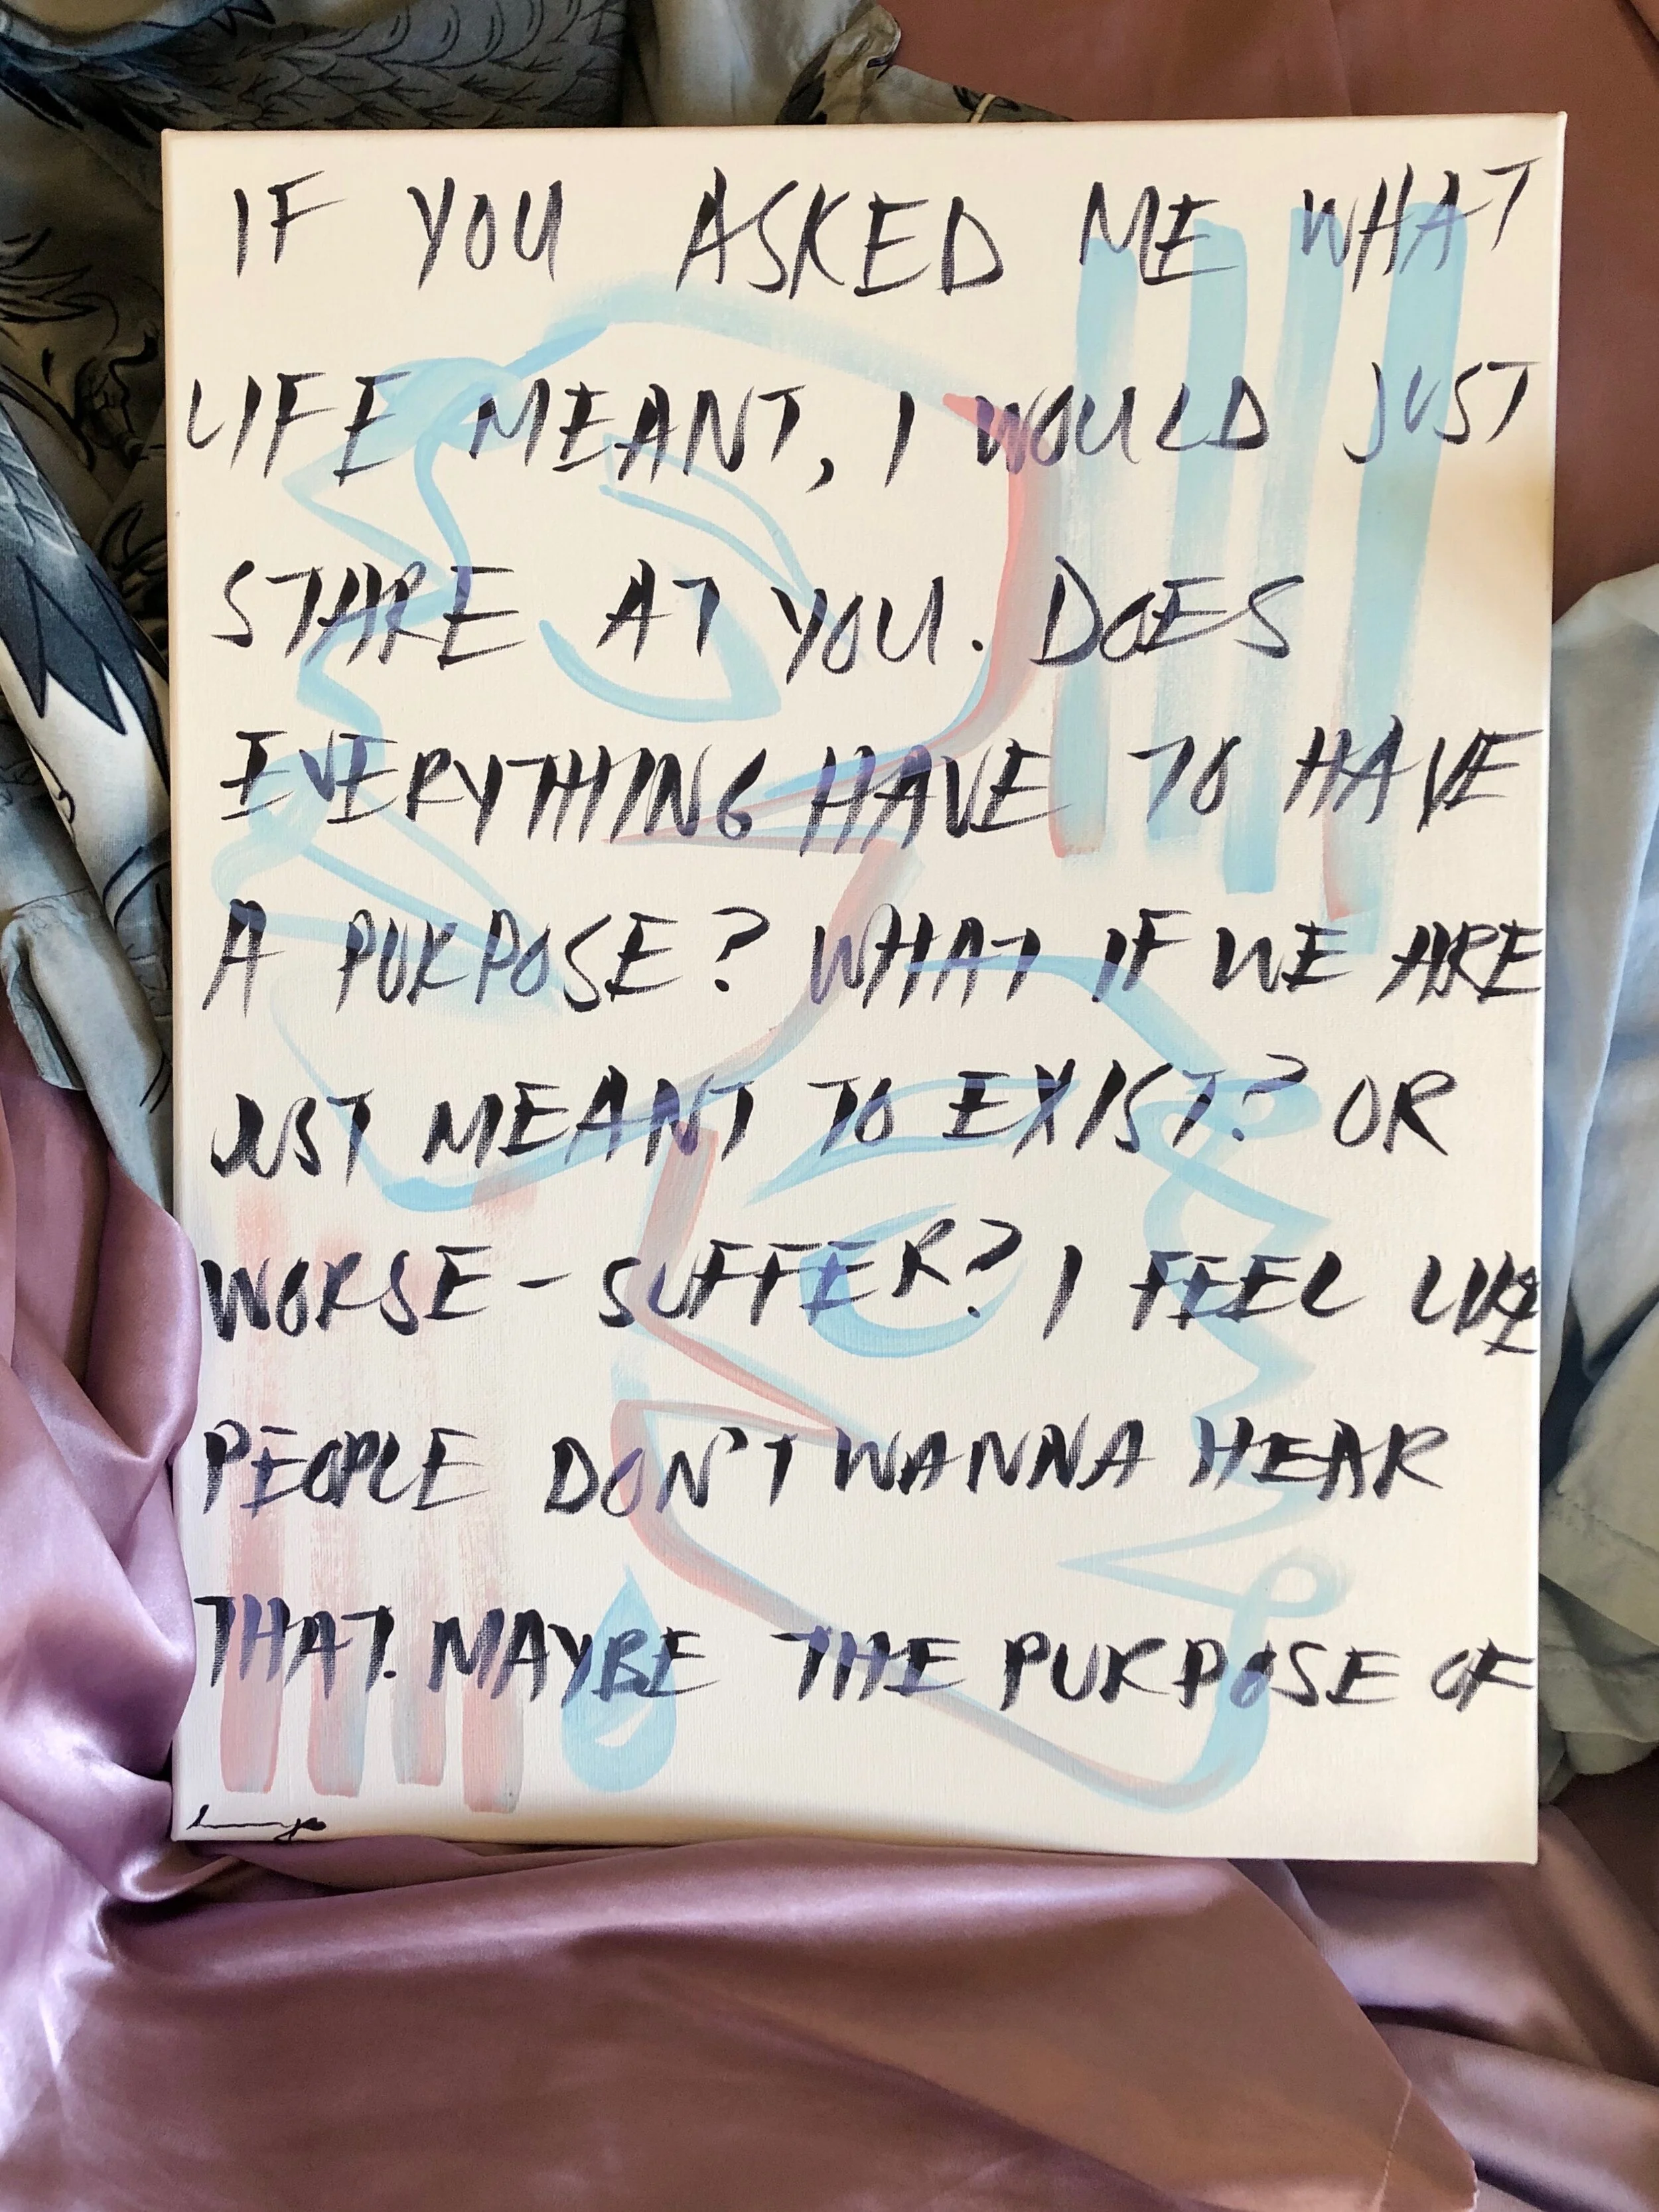 IF YOU ASKED ME WHAT
LIFE MEANT, I WOULD JUST
STARE AT YOU. DOES
EVERYTHING HAVE TO HAVE
A PURPOSE? WHAT IF WE ARE
JUST MEANT TO EXIST? OR
WORSE - SUFFER? I FEEL LIKE
PEOPLE DON'T WANNA HEAR
THAT. MAYBE THE PURPOSE OF